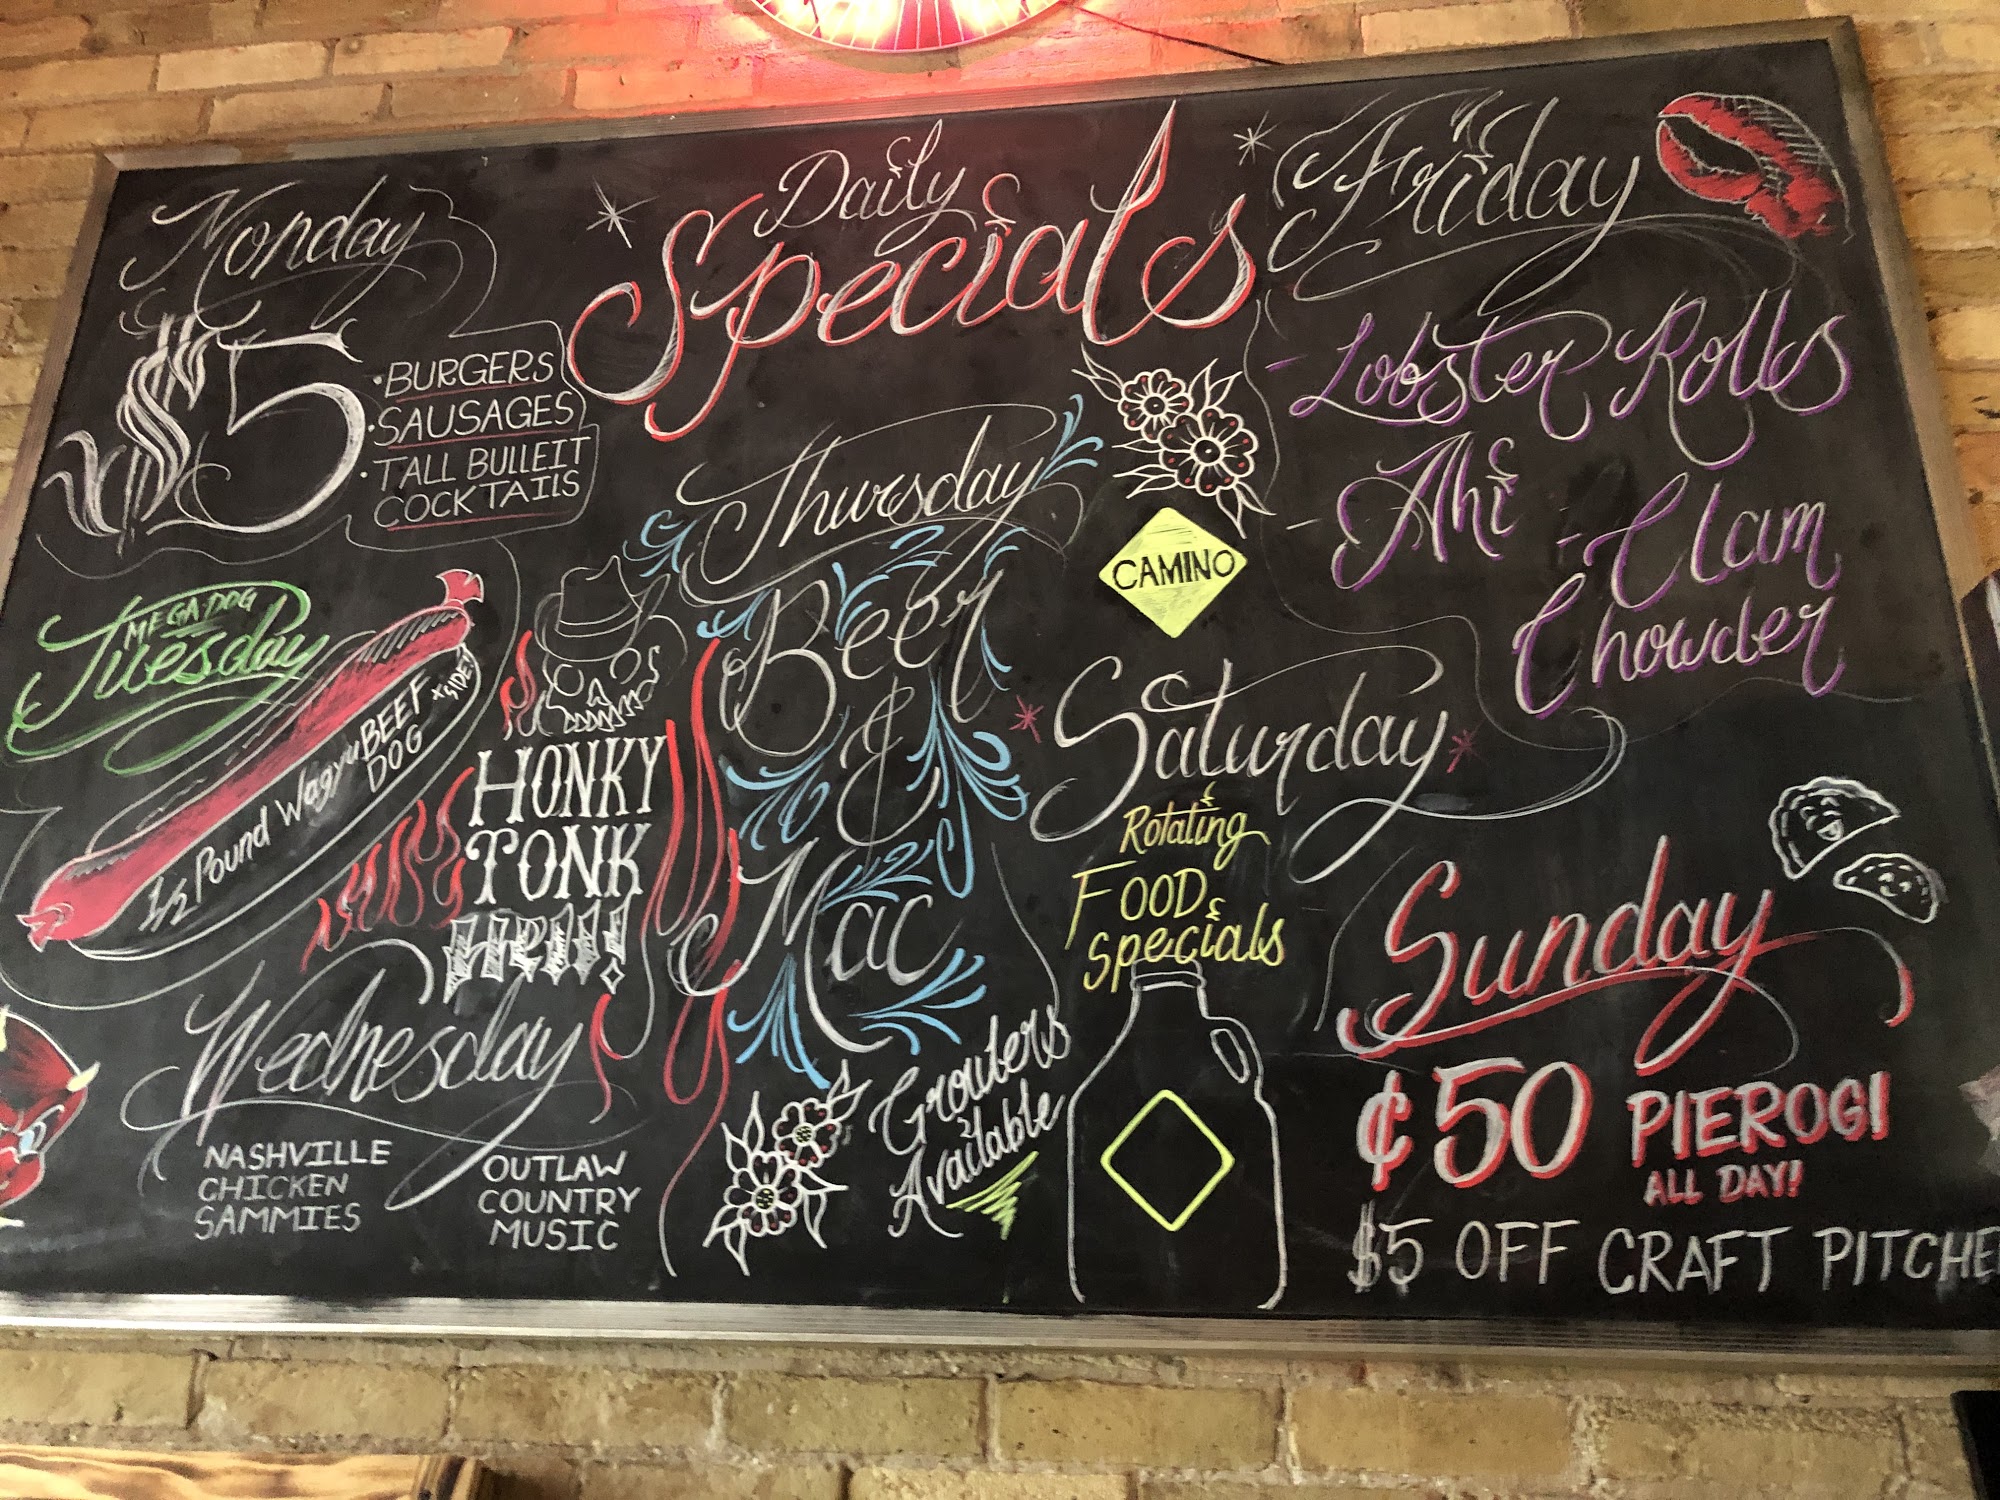 Daily
Specials
Monday
$5
• BURGERS
• SAUSAGES
• TALL BULLEIT
COCKTAILS
MEGA-DOG
Tuesday
1/2 Pound Wagyu BEEF
DOG
x SIDE
HONKY
TONK
HELL!
Wednesday
NASHVILLE
CHICKEN
SAMMIES
OUTLAW
COUNTRY
MUSIC
Thursday
Beer
&
Mac
Growlers
Available
CAMINO
Friday
- Lobster Rolls
- Ahi
- Clam
Chowder
Saturday
Rotating
FOOD
Specials
Sunday
¢50 PIEROGI
ALL DAY!
$5 OFF CRAFT PITCHE